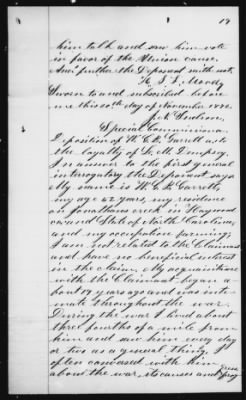 19
him talk and saw him vote
in favor of the Union cause.
And further the Deponent saith not.
Sworn to and subscribed before
me this 20th day of November 1872
Special Commissioner
Deposition of W. C. B. Garrett as to
the loyalty of
In answer to the first general
interrogatory the Deponent says
My name is W. C. B. Garrett,
my age 62 years, my residence
on Jonathans creek in Haywood
co. and State of North Carolina,
and my occupation farming,
I am not related to the Claimant
and have no beneficial interest
in the claim. My acquaintance
with the Claimant began a-
bout 19 years ago and was inti-
mate throughout the war.
During the war I lived about
three fourths of a mile from
him and saw him every day
or two as a general thing, I
often conversed with him
about the war, its causes and prog
ress